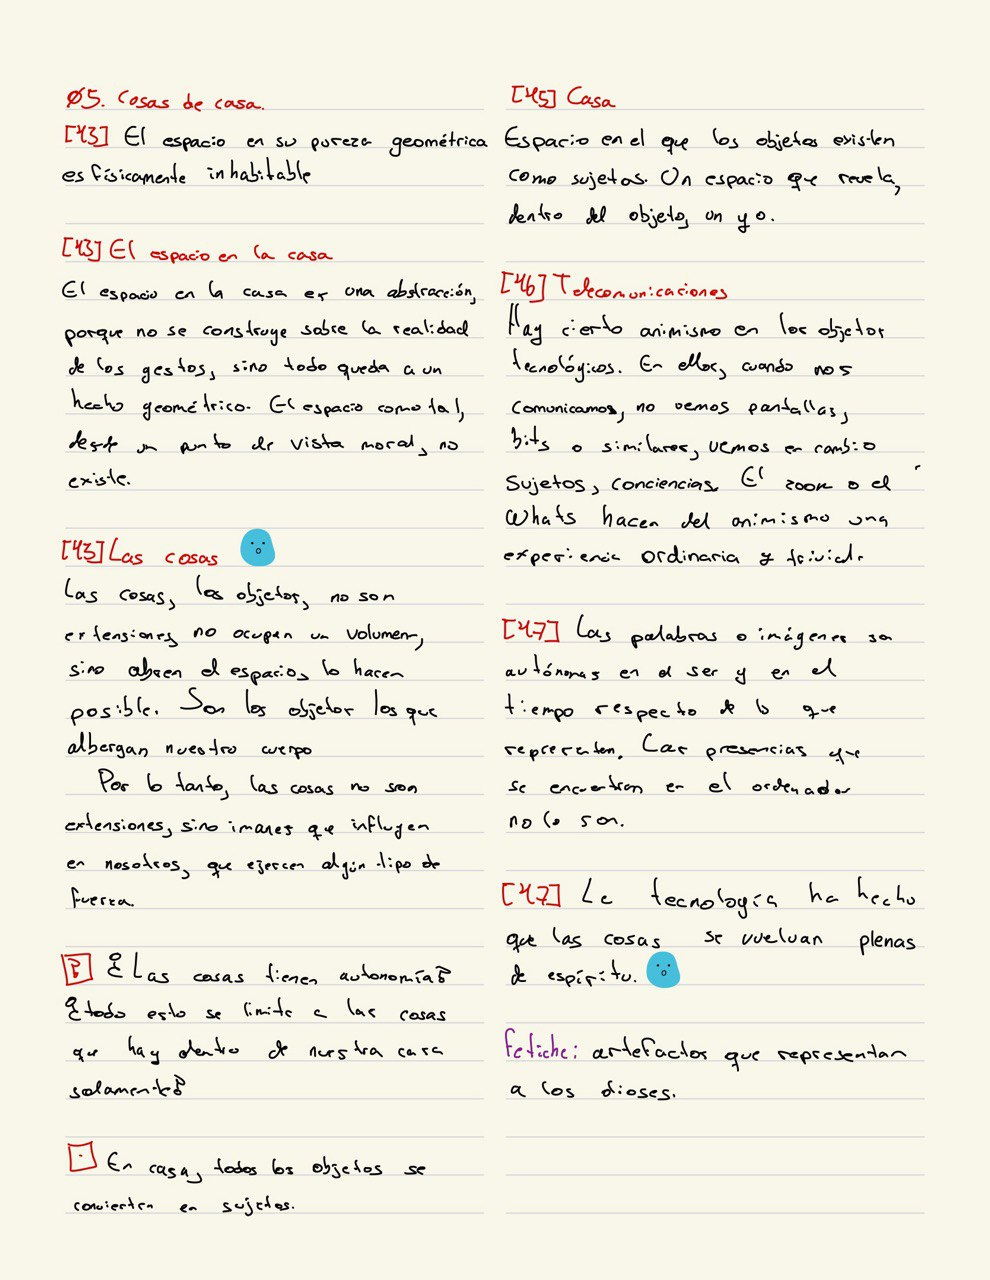 Ø5. Cosas de casa.
[43] El espacio en su pureza geométrica
es físicamente inhabitable
[43] El espacio en la casa
El espacio en la casa es una abstracción,
porque no se construye sobre la realidad
de los gestos, sino todo queda a un
hecho geométrico. El espacio como tal,
desde un punto de vista moral, no
existe.
[43] Las cosas
Las cosas, los objetos, no son
extensiones, no ocupan un volumen,
sino abren el espacio, lo hacen
posible. Son los objetos los que
albergan nuestro cuerpo
Por lo tanto, las cosas no son
extensiones, sino imanes que influyen
en nosotros, que ejercen algún tipo de
fuerza.
[?] ¿Las cosas tienen autonomía?
¿todo esto se limita a las cosas
que hay dentro de nuestra casa
solamente?
[·] En casa, todos los objetos se
convierten en sujetos.
[45] Casa
Espacio en el que los objetos existen
como sujetos. Un espacio que revela,
dentro del objeto, un yo.
[46] Telecomunicaciones
Hay cierto animismo en los objetos
tecnológicos. En ellos, cuando nos
comunicamos, no vemos pantallas,
bits o similares, vemos en cambio
sujetos, conciencias. El zoom o el
Whats hacen del animismo una
experiencia ordinaria y trivial.
[47] Las palabras o imágenes son
autónomas en el ser y en el
tiempo respecto de lo que
representan. Las presencias que
se encuentran en el ordenador
no lo son.
[47] La tecnología ha hecho
que las cosas se vuelvan plenas
de espíritu.
Fetiche: artefactos que representan
a los dioses.